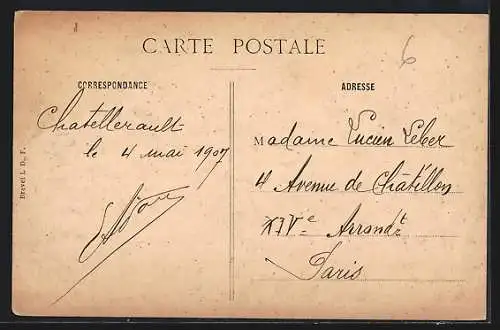 CARTE POSTALE
6
CORRESPONDANCE
ADRESSE
Chatellerault
le 4 mai 1907
Madame Lucien Leber
4 Avenue de Châtillon
XIVe Arrondt
Paris
Brevet L. D., F.